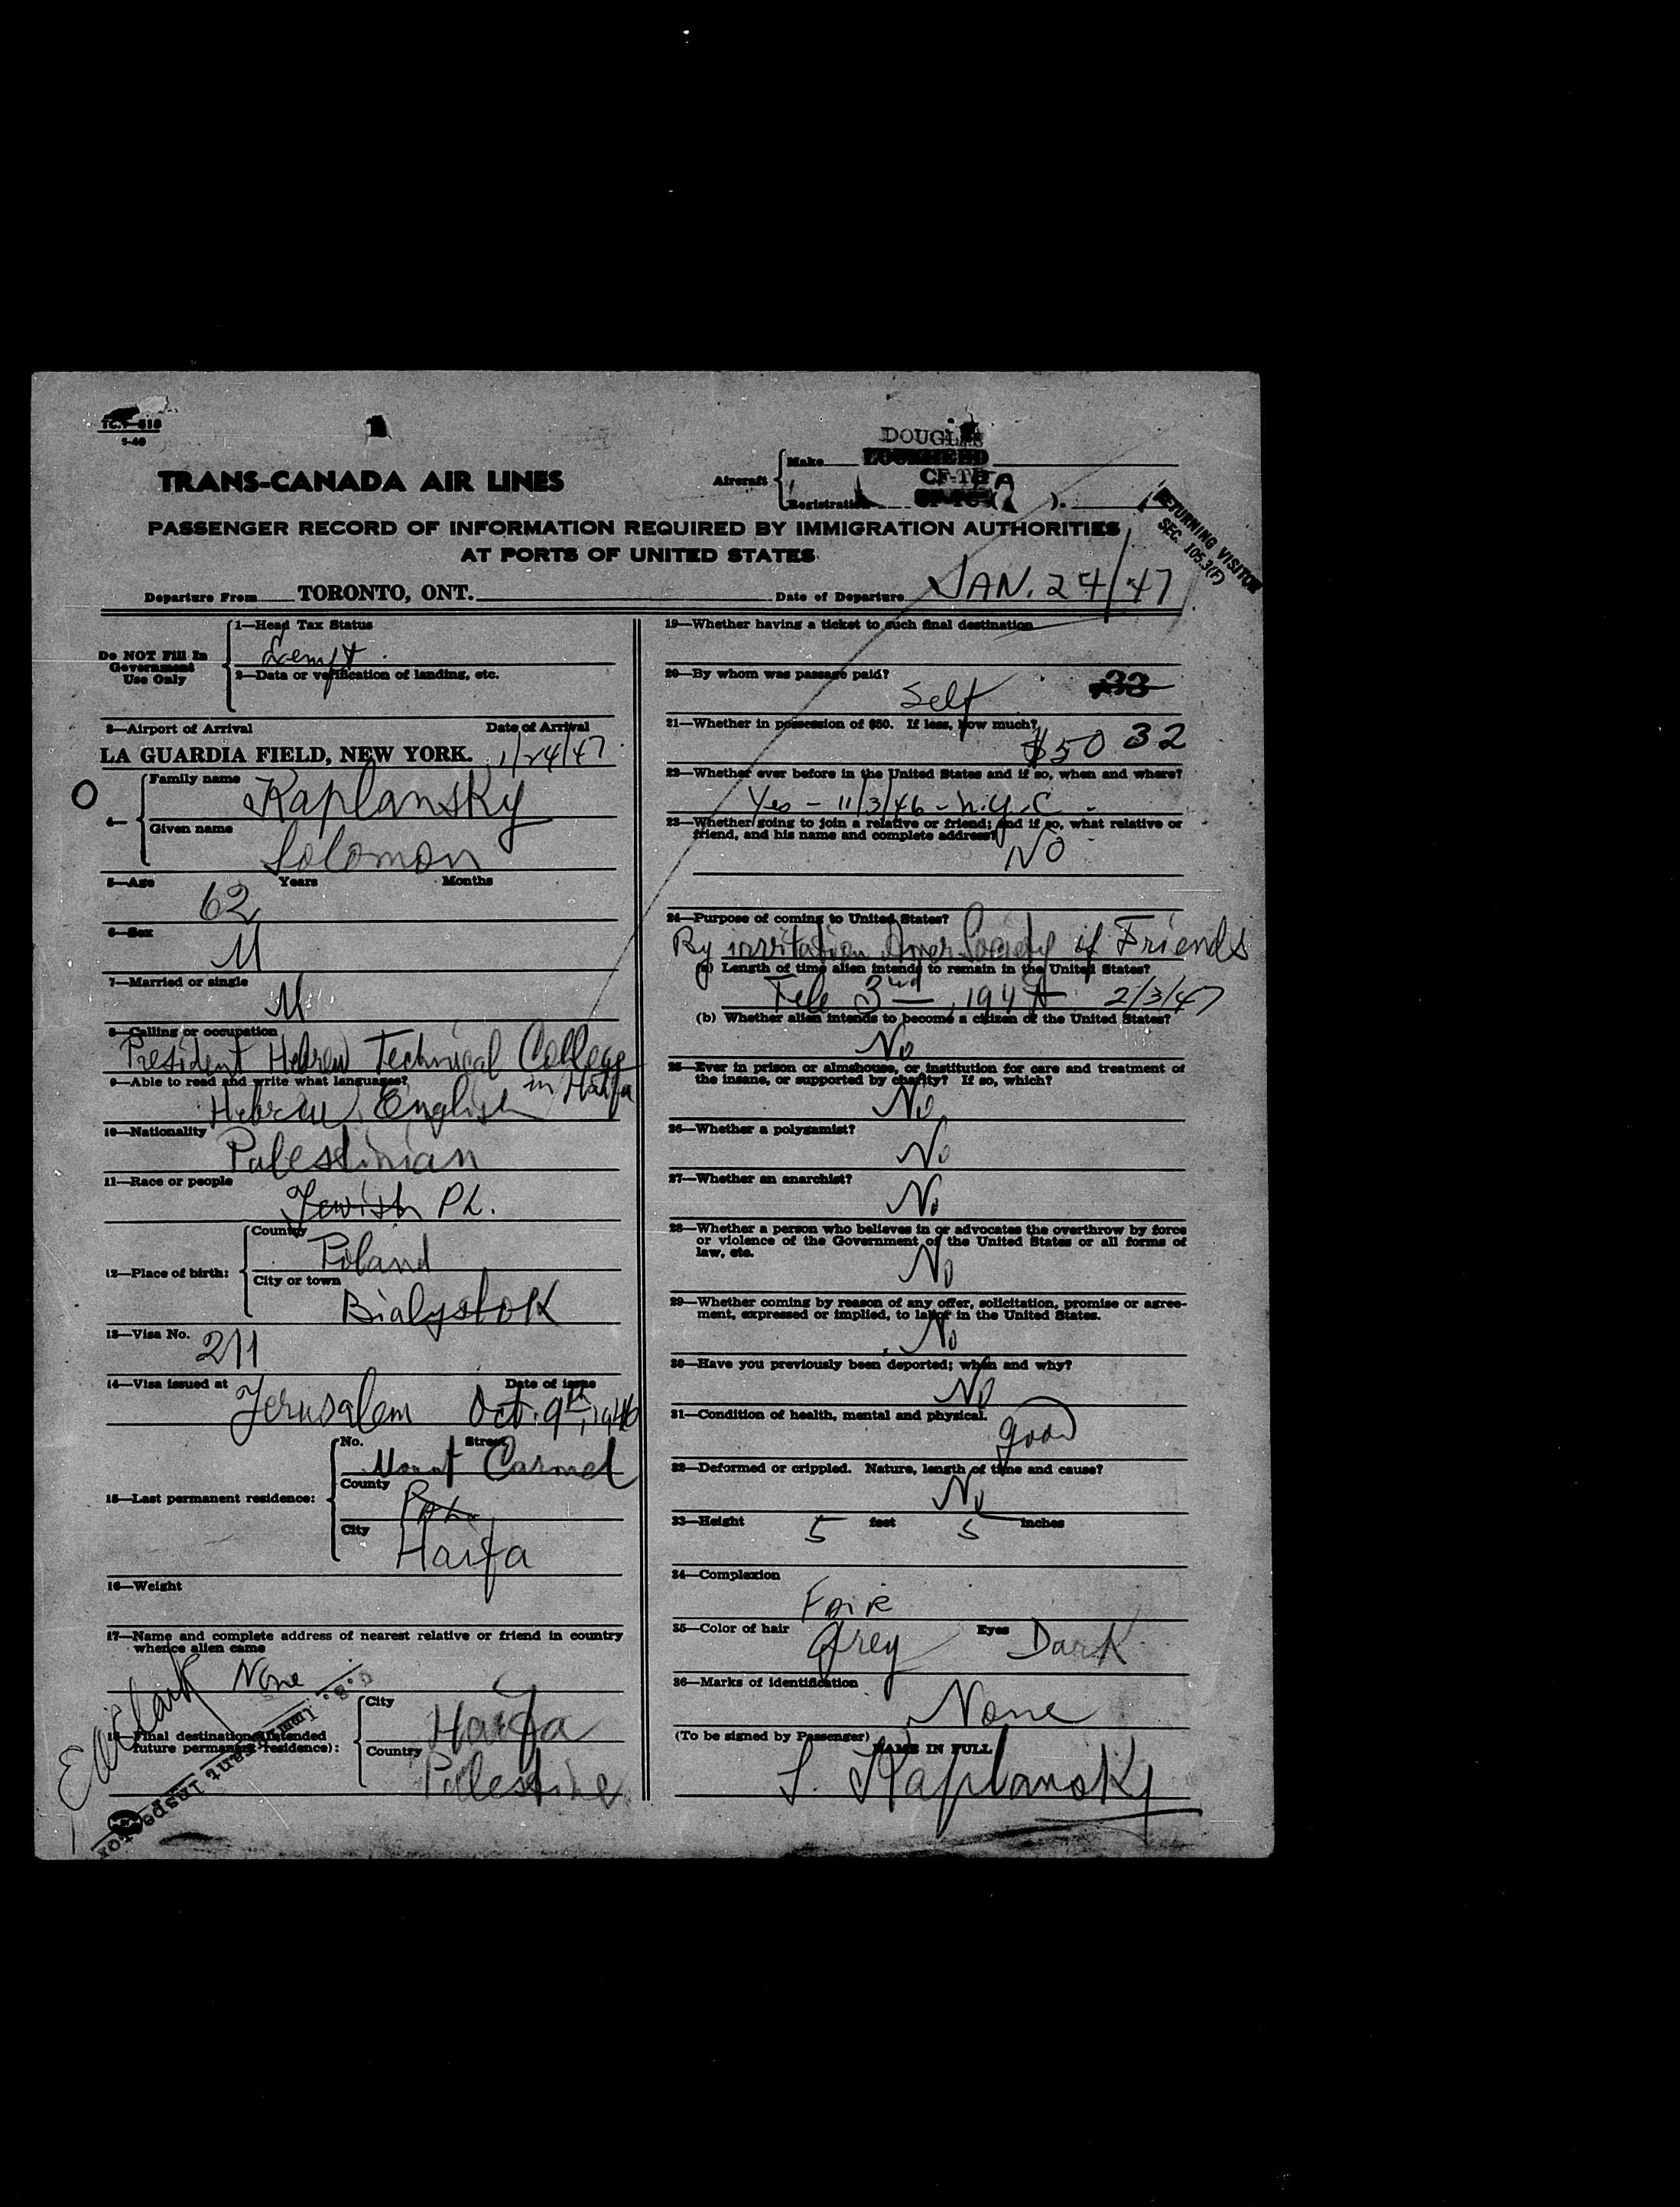 1-46
DOUGLAS
Make
TRANS-CANADA AIR LINES
Aircraft
Registration
PASSENGER RECORD OF INFORMATION REQUIRED BY IMMIGRATION AUTHORITIES
AT PORTS OF UNITED STATES
RETURNING VISITOR
SEC. 105.3(F)
Departure From TORONTO, ONT. Date of Departure JAN. 24/47
1—Head Tax Status
Exempt
Do NOT Fill In
Government
Use Only
2—Data or verification of landing, etc.
3—Airport of Arrival Date of Arrival
LA GUARDIA FIELD, NEW YORK. 1/24/47
O
4—
Family name
Kaplansky
Given name
Solomon
5—Age Years Months
62
6—Sex
M
7—Married or single
M
8—Calling or occupation
President Hebrew Technical College
in Haifa
9—Able to read and write what languages?
Hebrew, English
10—Nationality
Palestinian
11—Race or people
Jewish PL.
12—Place of birth:
Country
Poland
City or town
Bialystok
13—Visa No.
211
14—Visa issued at Date of issue
Jerusalem Oct. 9th, 1946
15—Last permanent residence:
No. Street
Mount Carmel
County
Pal.
City
Haifa
16—Weight
17—Name and complete address of nearest relative or friend in country
whence alien came
None
18—Final destination (intended
future permanent residence):
City
Haifa
Country
Palestine
U.S. Immigrant Inspector
19—Whether having a ticket to such final destination
20—By whom was passage paid?
Self 33
21—Whether in possession of $50. If less, how much?
$50 32
22—Whether ever before in the United States and if so, when and where?
Yes - 11/3/46 - N.Y.C -
23—Whether going to join a relative or friend; and if so, what relative or
friend, and his name and complete address?
NO
24—Purpose of coming to United States?
By invitation Amer Society of Friends
(a) Length of time alien intends to remain in the United States?
Feb 3rd 1947 2/3/47
(b) Whether alien intends to become a citizen of the United States?
No
25—Ever in prison or almshouse, or institution for care and treatment of
the insane, or supported by charity? If so, which?
No
26—Whether a polygamist?
No
27—Whether an anarchist?
No
28—Whether a person who believes in or advocates the overthrow by force
or violence of the Government of the United States or all forms of
law, etc.
No
29—Whether coming by reason of any offer, solicitation, promise or agree-
ment, expressed or implied, to labor in the United States.
No
30—Have you previously been deported; when and why?
No
31—Condition of health, mental and physical.
good
32—Deformed or crippled. Nature, length of time and cause?
No
33—Height 5 feet 5 inches
34—Complexion
FAIR
35—Color of hair Grey Eyes Dark
36—Marks of identification
None
(To be signed by Passenger)
NAME IN FULL
S. Kaplansky